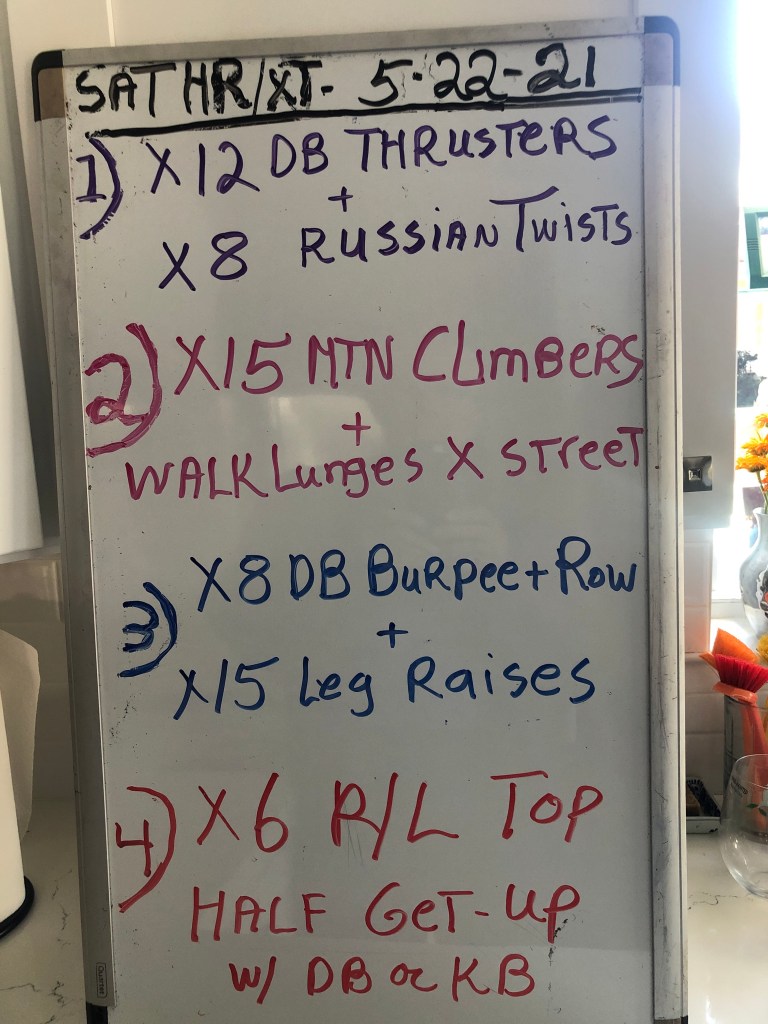 SAT HR/XT- 5-22-21
1) X12 DB THRUSTERS
+
X8 RUSSIAN TWISTS
2) X15 MTN CLIMBERS
+
WALK Lunges X STreeT
3) X8 DB BuRpee + Row
+
X15 Leg Raises
4) X6 R/L TOP
HALF GeT-UP
W/ DB or KB
Quartet